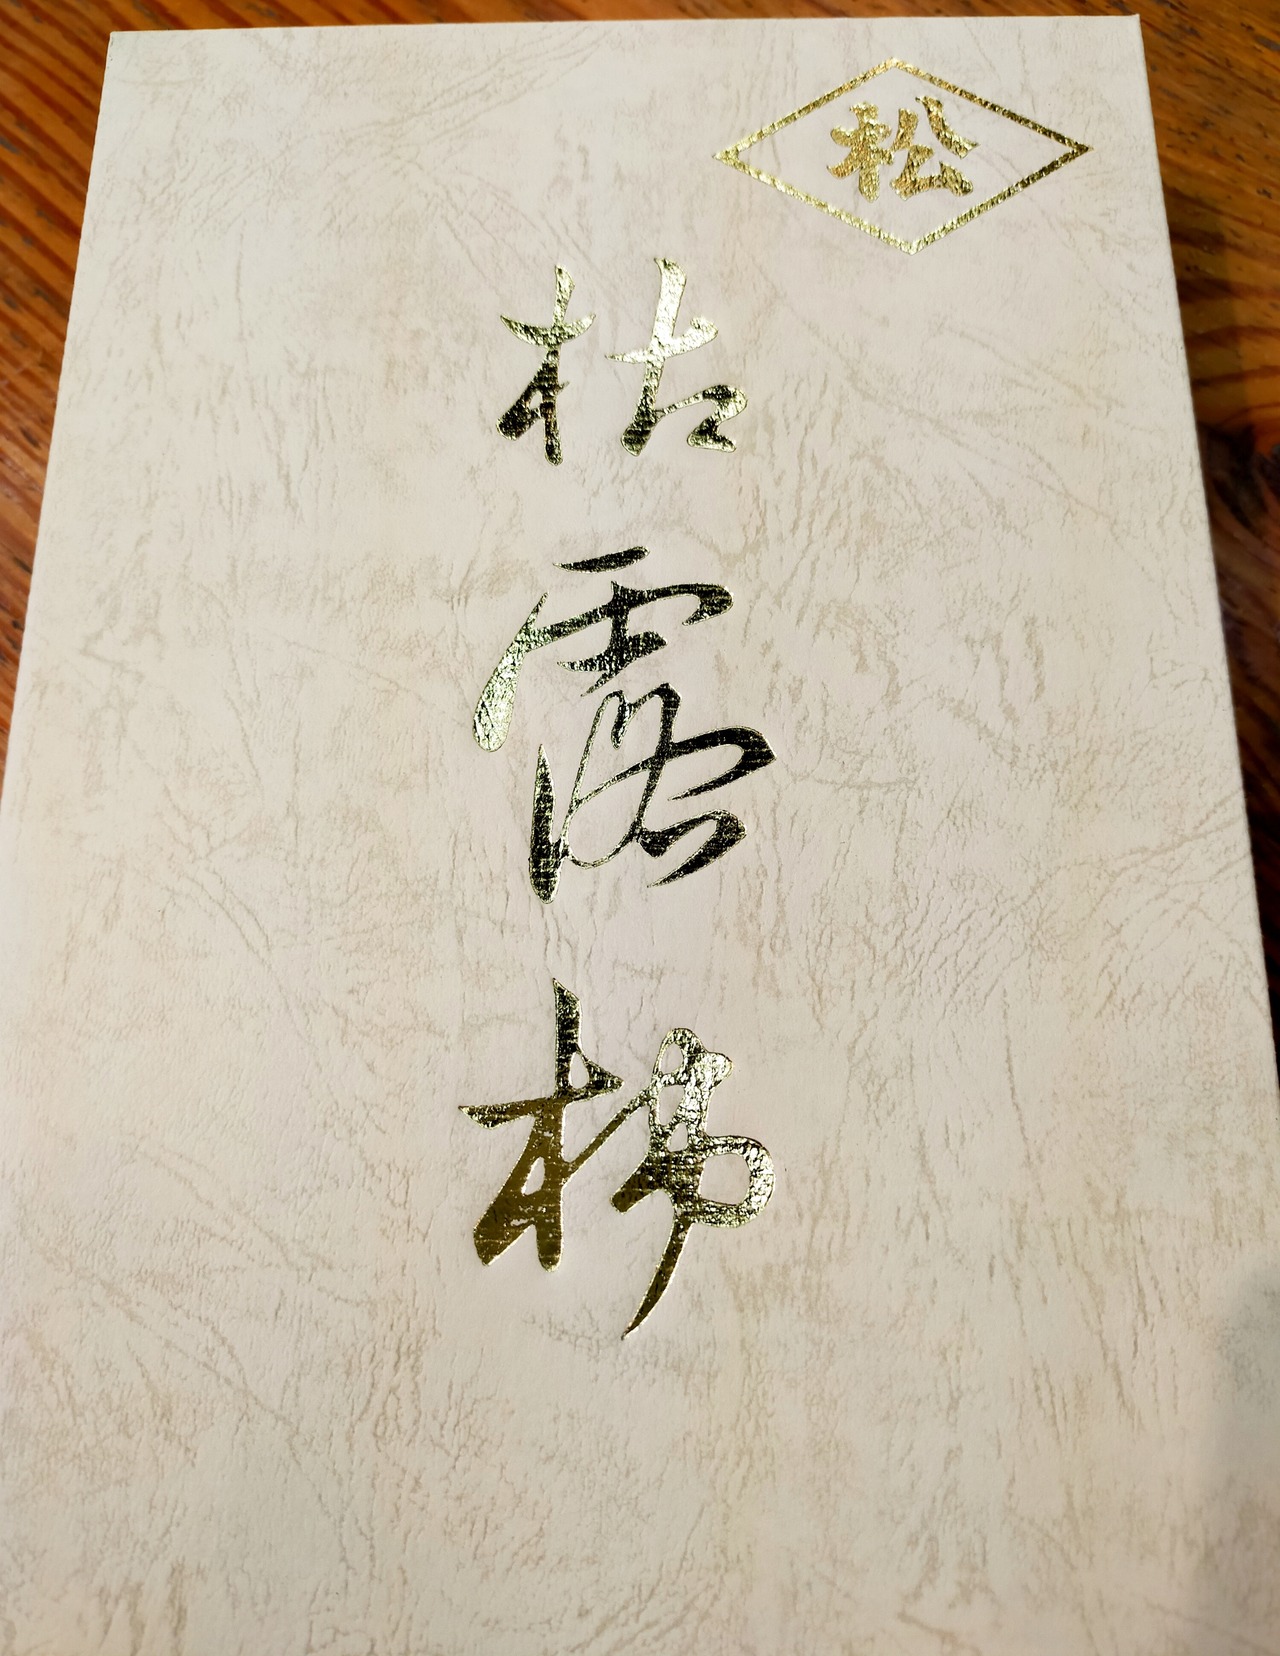 松
枯露柿